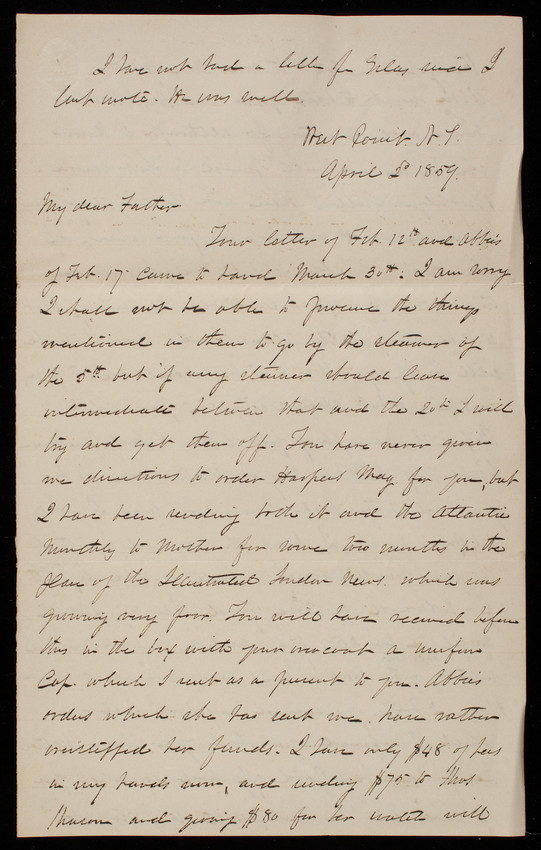 I have not had a letter fr Silas since I
last wrote. He was well.
West Point. N.Y.
April 2d 1859.
My dear Father
Your letter of Feb. 12th and Abbies
of Feb. 17. came to hand March 30th. I am sorry
I shall not be able to procure the things
mentioned in them to go by the steamer of
the 5th but if any steamer should leave
intermediate between that and the 20th I will
try and get them off. You have never given
me directions to order Harpers Mag. for you, but
I have been sending both it and the Atlantic
Monthly to Mother for some two months in the
place of the Illustrated London News. which was
growing very poor. You will have received before
this in the box with your overcoat a uniform
Cap. which I sent as a present to you. Abbies
orders which she has sent me, have rather
overstepped her funds. I have only $48 of hers
in my hands now, and sending $75 to Thos
Mason and giving $80 for her watch will